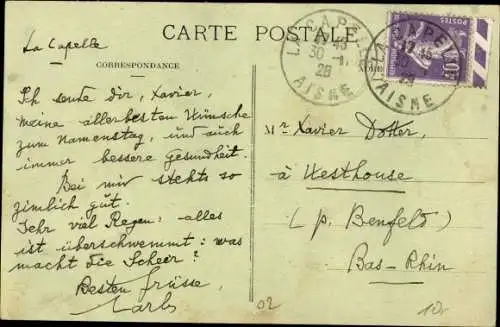 CARTE POSTALE
La Capelle
CORRESPONDANCE
LA CAPELLE
30 -
28
AISNE
LA CAPELLE
28
AISNE
POSTES
Ich sende dir, Xavier,
meine allerbesten Wünsche
zum Namenstag, und auch
immer bessere Gesundheit.
Bei mir stehts so
zimlich gut.
Sehr viel Regen: alles
ist überschwemmt: was
macht die Scheer?
Besten Grüsse,
Mr Xavier Dotter,
à Uesthouse
(p. Benfeld)
Bas-Rhin
02
10.-